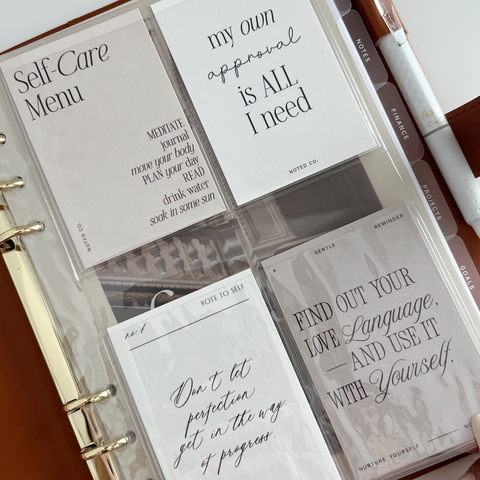 Self-Care
Menu
MEDITATE
journal
move your body
PLAN your day
READ
drink water
soak in some sun
NOTED CO.
my own
approval
is ALL
I need
NOTED CO.
NOTES
FINANCE
PROJECTS
GOALS
NOTE TO SELF
Don't let
perfection
get in the way
of progress.
A GENTLE REMINDER
FIND OUT YOUR
LOVE Language,
— AND USE IT
WITH Yourself.
NURTURE YOURSELF